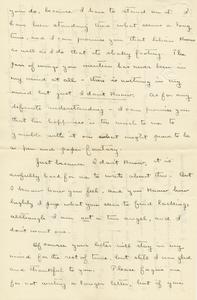 you do, because I have to stand on it. I
have been standing this what seems a long
time, and I can promise you that
as well as I do that its shaky footing. The
of things you mention has never been in
my mind at all - there is nothing in my
mind but just I don't know. As for any
definite understanding - I can promise you
that her happiness is too much to me to
gamble with it on what might prove to be
a pen and paper fantasy.
Just because I don't know, it is
awfully hard for me to write about this. But
I know how you feel, and you know how
highly I prize what you seem to find lacking
although I am not a tin angel, and I
don't want one.
Of course your letter will stay in my
mind for the rest of time, but still I am glad
and thankful to you. Please forgive me
for not writing a longer letter, but if you